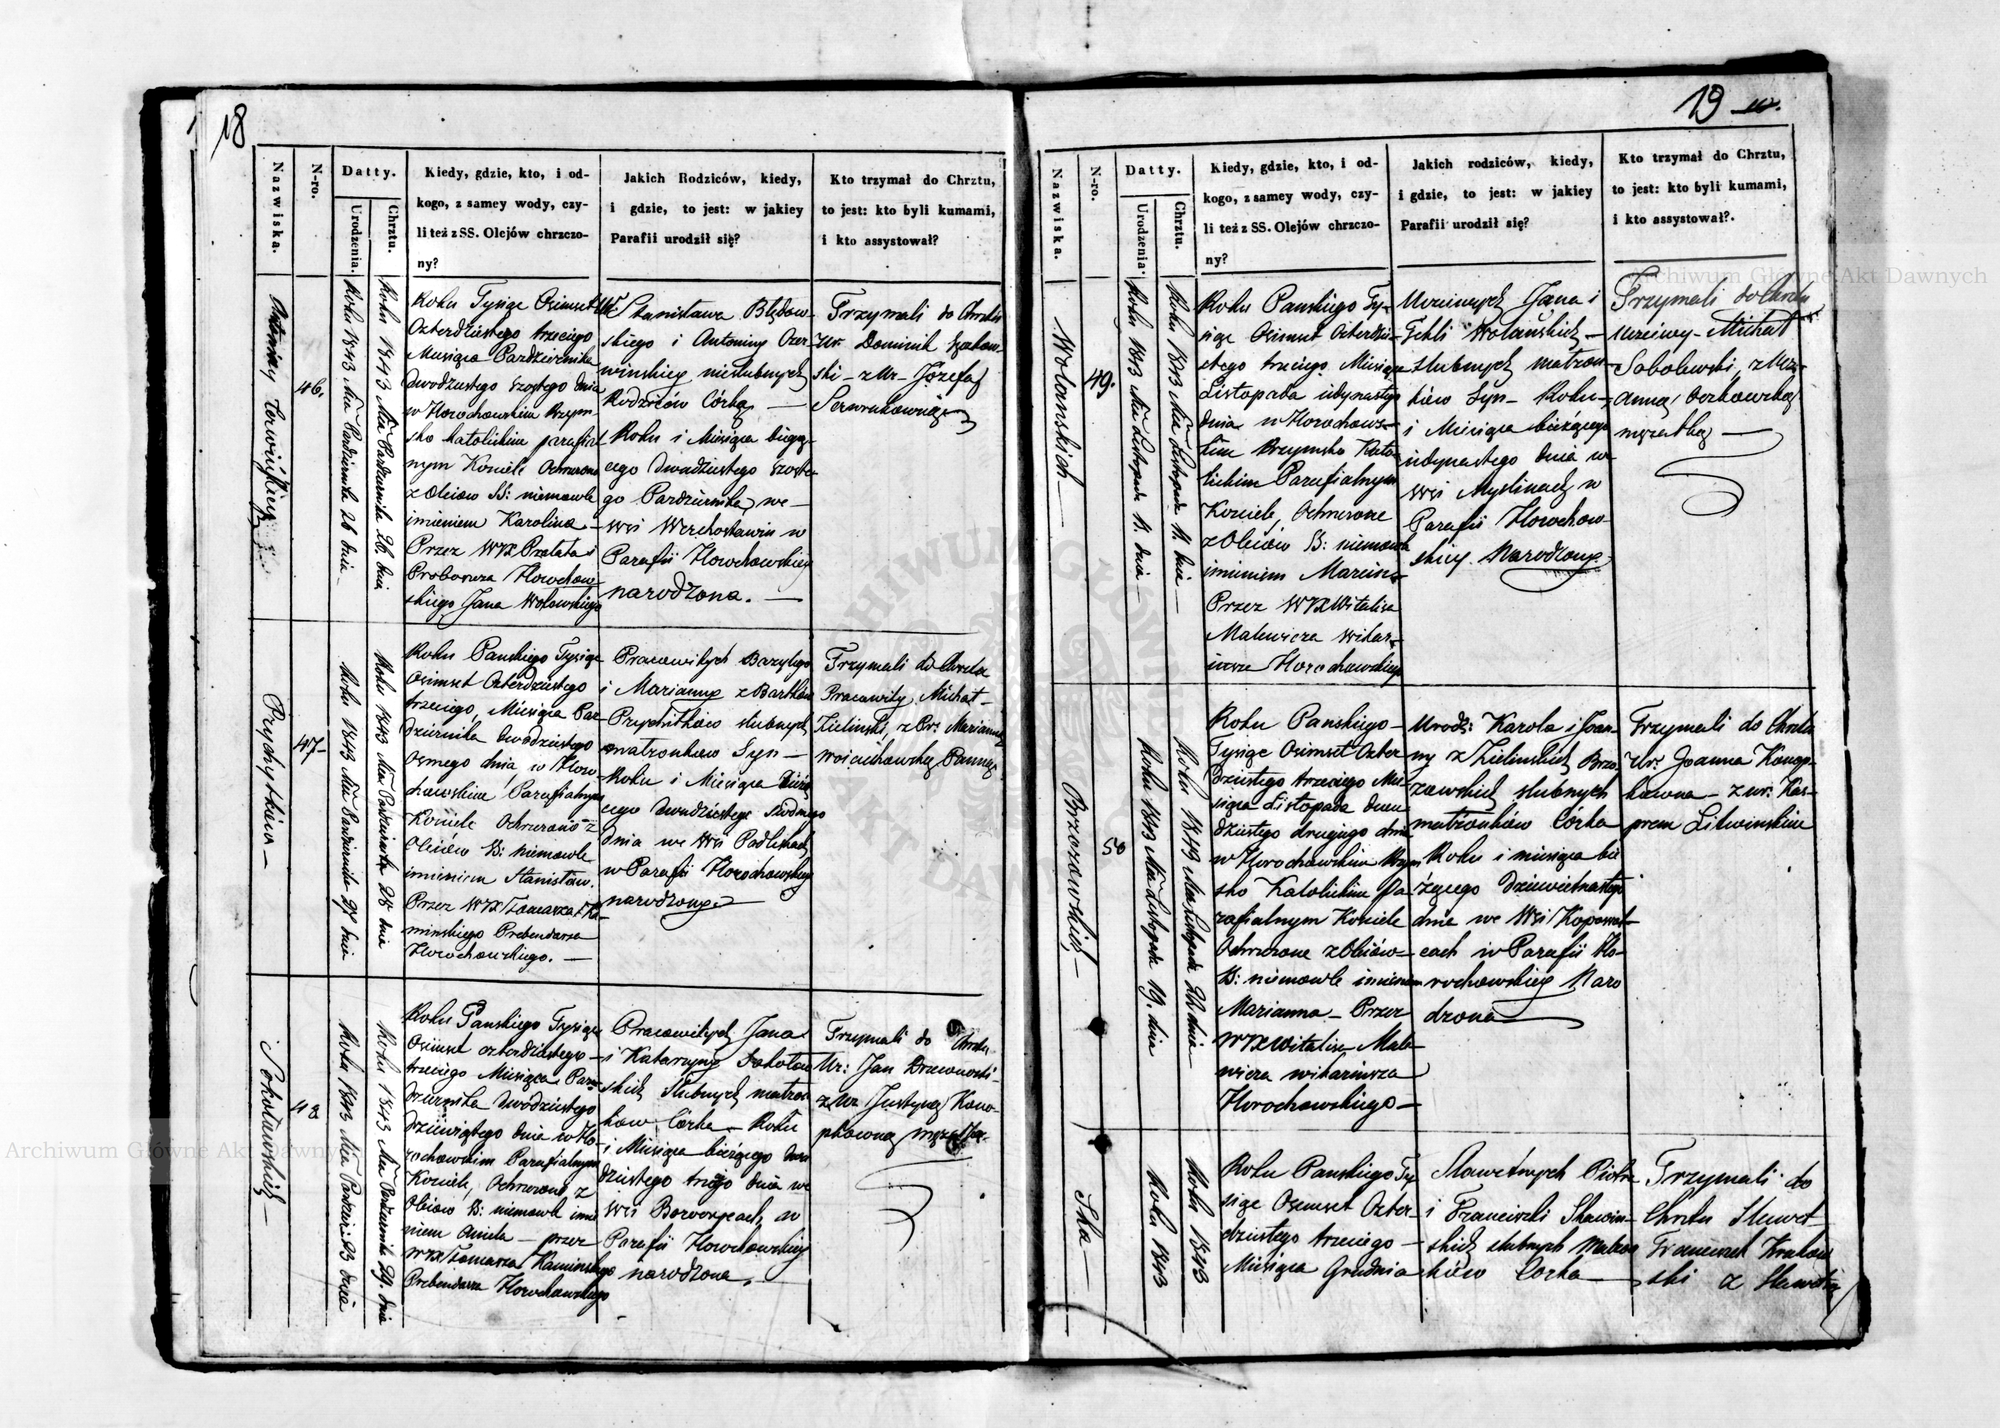 18
Nazwiska.
N-ro.
Datty.
Urodzenia.
Chrztu.
Kiedy, gdzie, kto, i od-
kogo, z samey wody, czy-
li też z SS. Olejów chrzczo-
ny?
Jakich Rodziców, kiedy,
i gdzie, to jest: w jakiey
Parafii urodził się?
Kto trzymał do Chrztu,
to jest: kto byli kumami,
i kto assystował?
46.
Roku 1843 Mca Pazdziernika 26 dnia
Roku 1843 Mca Pazdziernika 26. dnia
Roku Tysiąc Osimset
Czterdziestego trzeciego
Miesiąca Pazdziernika
dwódziestego szostego dnia
w Horochowskim Rzym-
sko katolickim parafial
nym Kościele Ochrzczona
z Oleiow SS: niemowle
imieniem Karolina
Przez WJX Prałata
Proboszcza Horochow
skiego Jana Wołowskiego
Stanisława Błędow-
skiego i Antoniny Czer
winskiey nieslubnych
Rodziców Córka —
Roku i Miesiąca bieżą-
cego dwadziestego szoste
go Pazdziernika we —
wsi Wierzchosławiu w
Parafii Horochowskiey
narodzona. —
Trzymali do Chrztu
Ur. Dominik
ski - z Ur - Józefą
47
Prychytków —
Roku 1843 Mca Pazdziernika 27 dnia
Roku 1843 Mca Pazdziernika 28 dnia
Roku Panskiego Tysiąc
Osimset Czterdziestego
trzeciego, Miesiąca Paz
dziernika dwodziestego
osmego dnia w Horo
chowskim Parafialnym
Kościele Ochrzczono z
Oleiów S: niemowle
imieniem Stanisław.
Przez WJX Tomasza Ka
minskiego Prebendarza
Horochowskiego. —
Pracowitych Bazylego
i Marianny z Bartków
Prychitków slubnych
małżonków Syn —
Roku i Miesiąca bieżą
cego dwadziestego Siodmego
dnia we Wsi Padlikach
w Parafii Horochowskiey
narodzony. —
Trzymali do Chrztu
Pracowity Michał
Zielinski, z Ur. Marianną
Woiciechowską Panną
48
Sokołowskich —
Roku 1843 Mca Pazdzier: 23 dnia
Roku 1843 Mca Pazdziernika 29 dnia
Roku Panskiego Tysiąc
Osimset czterdziestego —
trzeciego Miesiąca Paz
dziernika dwodziestego
dziewiątego dnia w Ho-
rochowskim Parafialnym
Kościele, Ochrzczono z
Oleiow S: niemowle imie
niem Aniela — przez
WJX Tomasza Kaminskiego
Prebendarza Horochowskiego
Pracowitych Jana
i Katarzyny Sokołow
skich Slubnych małżon
kow Córka - Roku
i Miesiąca bieżącego dwu
dziestego trzego dnia we
wsi w
Parafii Horochowskiey
narodzona. —
Trzymali do Chrztu
Ur: Jan Drzewowski
z Ur Justyną Kono-
pkowną mężatką.
19
Nazwiska.
N-ro.
Datty.
Urodzenia.
Chrztu.
Kiedy, gdzie, kto, i od-
kogo, z samey wody, czy-
li też z SS. Olejów chrzczo-
ny?
Jakich rodziców, kiedy,
i gdzie, to jest: w jakiey
Parafii urodził się?
Kto trzymał do Chrztu,
to jest: kto byli kumami,
i kto assystował?
49.
Wolanskich —
Roku 1843 Mca Listopada 11. dnia —
Roku 1843 Mca Listopada 11. dnia —
Roku Panskiego Ty-
siąc Osimset Czterdzie-
stego trzeciego Miesiąca
Listopada iedynastego
dnia w Horochows-
kim Rzymsko Kato
lickim Parafialnym
Kościele, Ochrzczone
z Oleiow S: niemowle
imieniem Marcin
Przez WJX Witalisa
Malewicza Wikar-
iusza Horochowskiego
Uczciwych Jana i
Tekli Wolańskich —
slubnych małżon-
ków Syn - Roku
i Miesiąca bieżącego
iedynastego dnia w
wsi Myslinach w
Parafii Horochow-
skiey Narodzony.
Trzymali do Chrztu
Uczciwy Michał
Sobolewski, z Ucz:
Anną
mężatką —
50
Brzozowskich —
Roku 1843 Mca Listopada 19. dnia
Roku 1843 Mca Listopada 22 dnia
Roku Panskiego —
Tysiąc Osimset Czter
dziestego trzeciego Mie
siąca Listopada dwu
dziestego drugiego dnia
w Horochowskim Rzym
sko Katolickim Pa
rafialnym Kosciele
Ochrzczone z Oleiów —
S: niemowle imieniem
Marianna — Przez
WJX Witalisa Male
wicza Wikariusza
Horochowskiego —
Urodz: Karola i Joan-
ny z Zielinskich Brzo
zowskich slubnych
małżonków Córka
Roku i miesiąca bie
żącego dziewietnastego
dnia we Wsi
cach w Parafii Ho-
rochowskiey Naro
dzona —
Trzymali do Chrztu
Ur: Joanna Konop
kowna — z ur. Kas-
prem Litwinskim
Ska —
Roku 1843
Roku 1843
Roku Panskiego Ty
siąc Osimset Czter
dziestego trzeciego —
Miesiąca Grudnia
Sławetnych Piotra
i Franciszki Skawin-
skich slubnych Małżon
ków Corka —
Trzymali do
Chrztu Sławet
Franciszek Krakow
ski z Sławetną
Archiwum Główne Akt Dawnych
Archiwum Główne Akt Dawnych
ARCHIWUM GŁÓWNE
AKT DAWNYCH